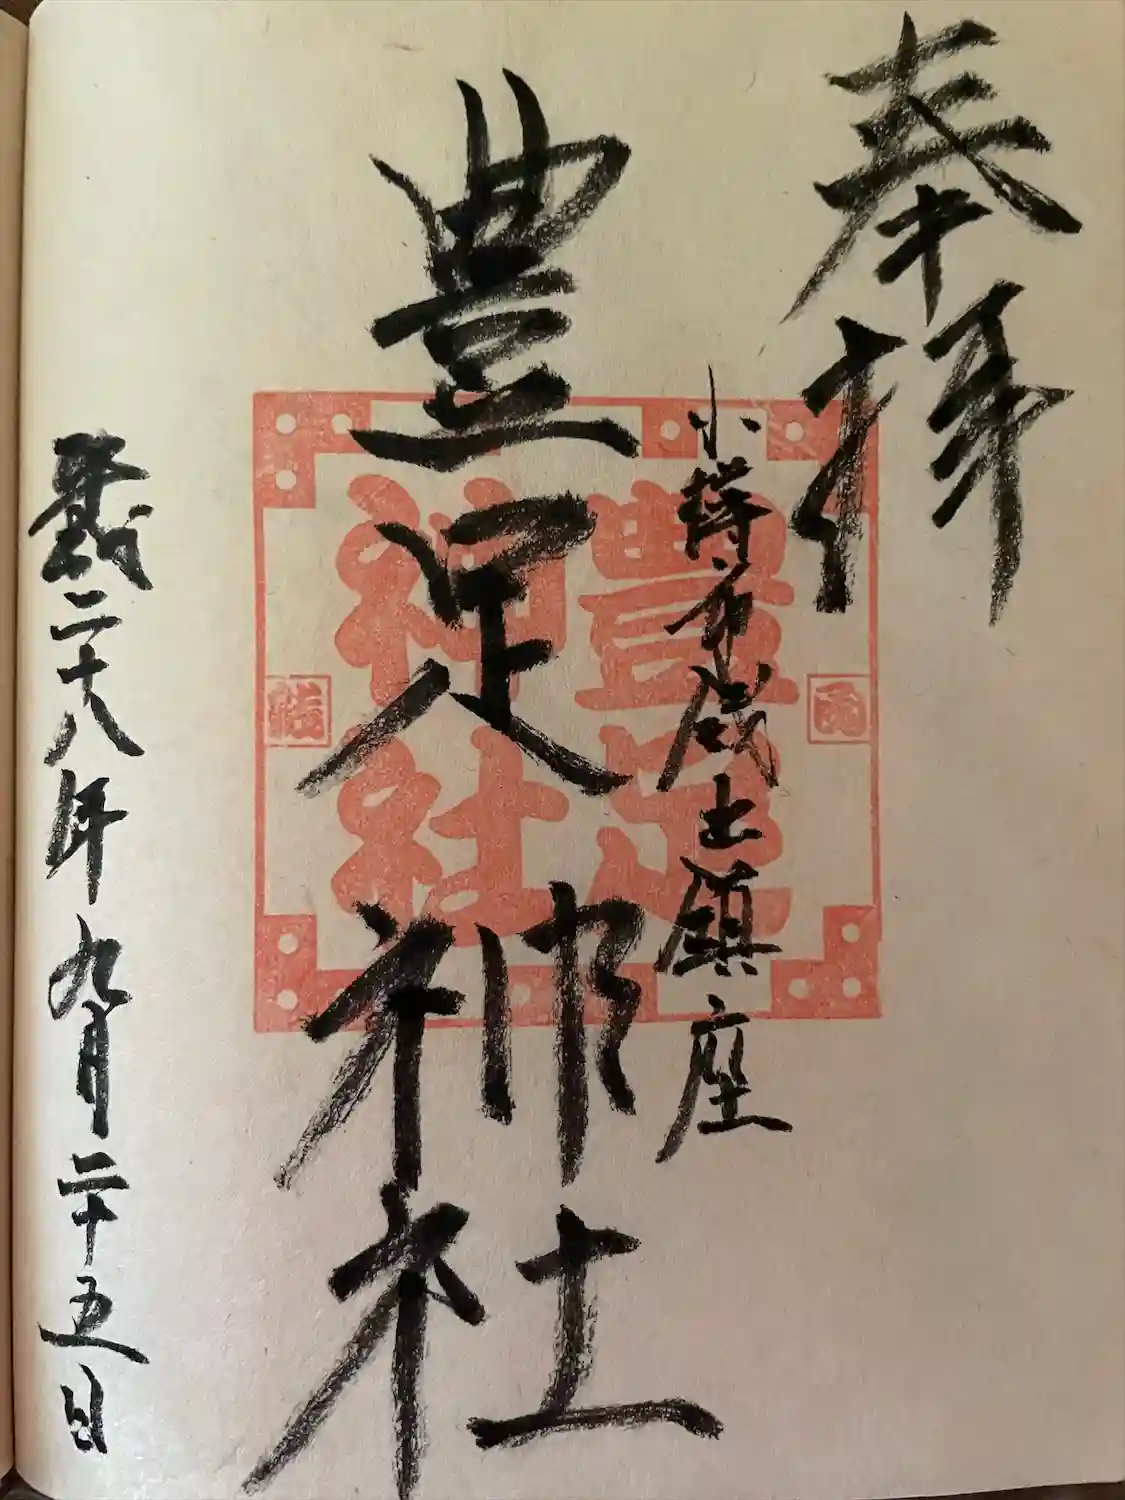 奉拝
小樽市 鎮座
豊足神社
平成二十八年九月二十五日
豊足
神社